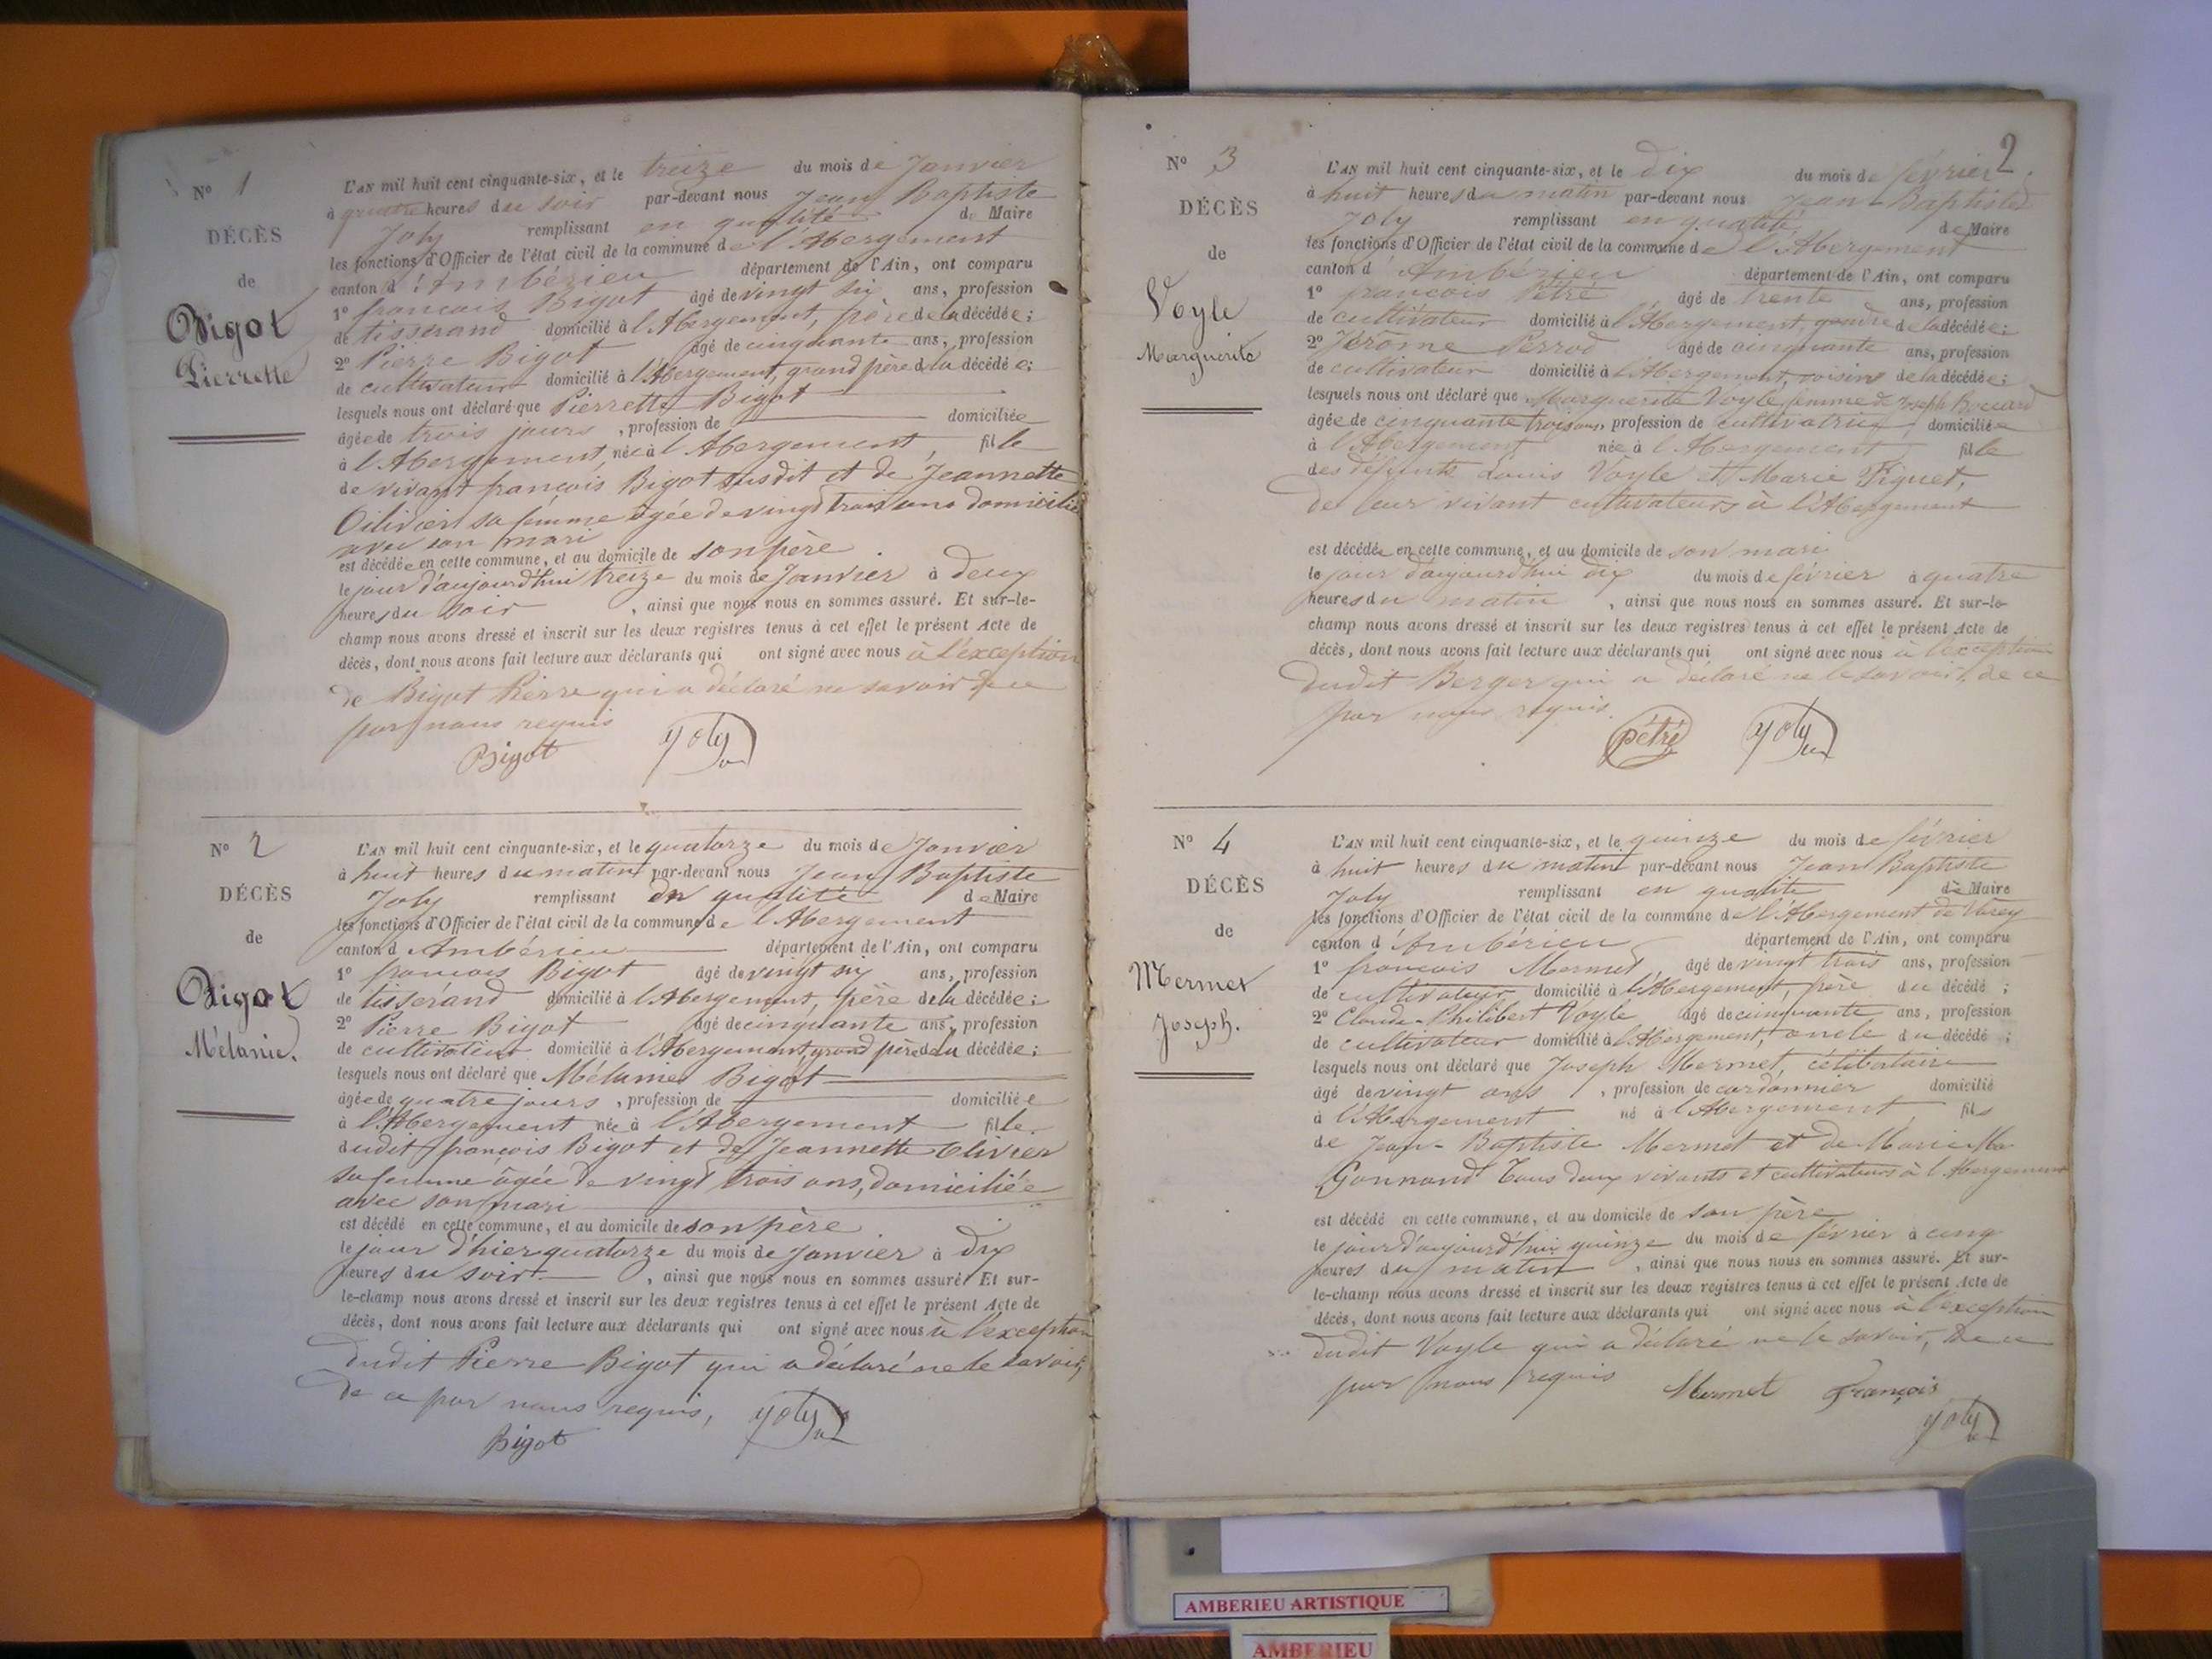 N° 1
DÉCÈS
de
Bigot
Pierrette
L'AN mil huit cent cinquante-six, et le treize du mois de Janvier
à quatre heures du soir par-devant nous Jean Baptiste
Joly remplissant en qualité de Maire
les fonctions d'Officier de l'état civil de la commune de l'Abergement
canton d'Ambérieu département de l'Ain, ont comparu
1° françois Bigot âgé de vingt six ans, profession
de tisserand domicilié à l'Abergement, père de la décédée;
2° Pierre Bigot âgé de cinquante ans, profession
de cultivateur domicilié à l'Abergement, grand père de la décédée;
lesquels nous ont déclaré que Pierrette Bigot
âgée de trois jours, profession de domiciliée
à l'Abergement, née à l'Abergement, fille
de vivant françois Bigot susdit et de Jeannette
Oilivier sa femme âgée de vingt trois ans domicilié
avec son mari
est décédée en cette commune, et au domicile de son père.
le jour d'aujourd'hui treize du mois de Janvier à deux
heures du soir, ainsi que nous nous en sommes assuré. Et sur-le-
champ nous avons dressé et inscrit sur les deux registres tenus à cet effet le présent Acte de
décès, dont nous avons fait lecture aux déclarants qui ont signé avec nous à l'exception
de Bigot Pierre qui a déclaré ne savoir de ce
par nous requis
Bigot Joly
N° 2
DÉCÈS
de
Bigot
Mélanie.
L'AN mil huit cent cinquante-six, et le quatorze du mois de Janvier
à huit heures du matin par-devant nous Jean Baptiste
Joly remplissant en qualité de Maire
les fonctions d'Officier de l'état civil de la commune de l'Abergement
canton d Ambérieu département de l'Ain, ont comparu
1° françois Bigot âgé de vingt six ans, profession
de tisserand domicilié à l'Abergement, père de la décédée;
2° Pierre Bigot âgé de cinquante ans, profession
de cultivateur domicilié à l'Abergement, grand père de la décédée;
lesquels nous ont déclaré que Mélanie Bigot
âgée de quatre jours, profession de domiciliée
à l'Abergement née à l'Abergement fille
dudit françois Bigot et de Jeannette Olivier
sa femme âgée de vingt trois ans, domiciliée
avec son mari
est décédé en cette commune, et au domicile de son père
le jour d'hier quatorze du mois de Janvier à dix
heures du soir, ainsi que nous nous en sommes assuré. Et sur-
le-champ nous avons dressé et inscrit sur les deux registres tenus à cet effet le présent Acte de
décès, dont nous avons fait lecture aux déclarants qui ont signé avec nous à l'exception
dudit Pierre Bigot qui a déclaré ne le savoir,
de ce par nous requis,
Bigot Joly
2
N° 3
DÉCÈS
de
Voyle
Marguerite
L'AN mil huit cent cinquante-six, et le dix du mois de février
à huit heures du matin par-devant nous Jean-Baptiste
Joly remplissant en qualité de Maire
les fonctions d'Officier de l'état civil de la commune de l'Abergement
canton d'Ambérieu département de l'Ain, ont comparu
1° françois Pétré âgé de trente ans, profession
de cultivateur domicilié à l'Abergement, gendre de la décédée;
2° Jérôme Perrod âgé de cinquante ans, profession
de cultivateur domicilié à l'Abergement, voisin de la décédée;
lesquels nous ont déclaré que Marguerite Voyle femme de Joseph
âgée de cinquante trois ans, profession de cultivatrice domiciliée
à l'Abergement née à l'Abergement fille
des défunts Louis Voyle et Marie Piguet,
de leur vivant cultivateurs à l'Abergement
est décédée en cette commune, et au domicile de son mari
le jour d'aujourd'hui dix du mois de février à quatre
heures du matin, ainsi que nous nous en sommes assuré. Et sur-le-
champ nous avons dressé et inscrit sur les deux registres tenus à cet effet le présent Acte de
décès, dont nous avons fait lecture aux déclarants qui ont signé avec nous à l'exception
dudit Berger qui a déclaré ne le savoir, de ce
par nous requis.
pétré Joly
N° 4
DÉCÈS
de
Mermet
Joseph.
L'AN mil huit cent cinquante-six, et le quinze du mois de février
à huit heures du matin par-devant nous Jean Baptiste
Joly remplissant en qualité de Maire
les fonctions d'Officier de l'état civil de la commune de l'Abergement de Varey
canton d'Ambérieu département de l'Ain, ont comparu
1° françois Mermet, âgé de vingt trois ans, profession
de cultivateur domicilié à l'Abergement, frère du décédé;
2° Claude-Philibert Voyle âgé de cinquante ans, profession
de cultivateur domicilié à l'Abergement, oncle du décédé;
lesquels nous ont déclaré que Joseph Mermet, célibataire
âgé de vingt ans, profession de cordonnier domicilié
à l'Abergement né à l'Abergement, fils
de Jean-Baptiste Mermet et de Marie
Gonnand tous deux vivants et cultivateurs à l'Abergement
est décédé en cette commune, et au domicile de son père
le jour d'aujourd'hui quinze du mois de février à cinq
heures du matin, ainsi que nous nous en sommes assuré. Et sur-
le-champ nous avons dressé et inscrit sur les deux registres tenus à cet effet le présent Acte de
décès, dont nous avons fait lecture aux déclarants qui ont signé avec nous à l'exception
dudit Voyle qui a déclaré ne le savoir, de ce
par nous requis Mermet François
Joly
AMBERIEU ARTISTIQUE
AMBERIEU